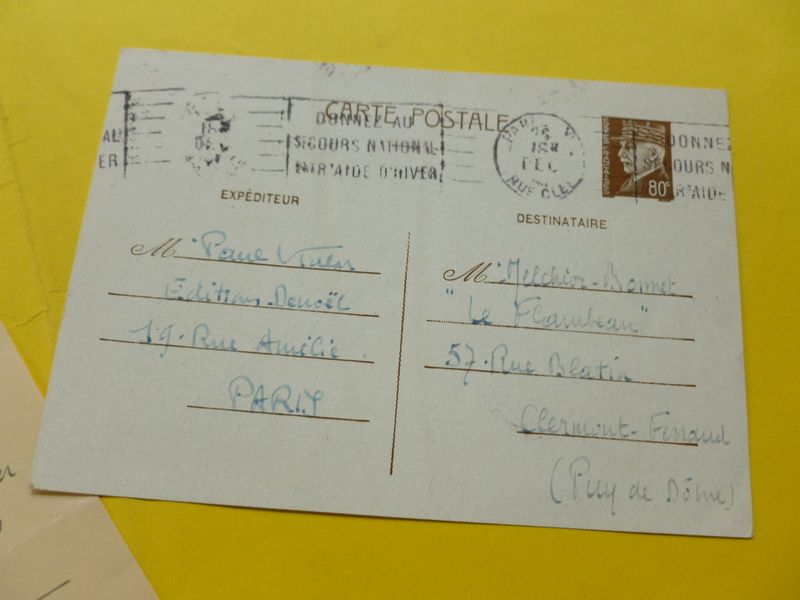 CARTE POSTALE
DONNEZ AU
SECOURS NATIONAL
ENTR'AIDE D'HIVER
PARIS VII
26
18H
DEC
RUE CLER
DONNEZ
COURS N
R'AIDE
AU
ER
80c
EXPÉDITEUR
M Paul Vialar
Editions Denoël
19. Rue Amélie.
PARIS
DESTINATAIRE
M. Melchior-Bonnet
"Le Flambeau"
57. Rue Blatin
Clermont-Ferrand
(Puy de Dôme)